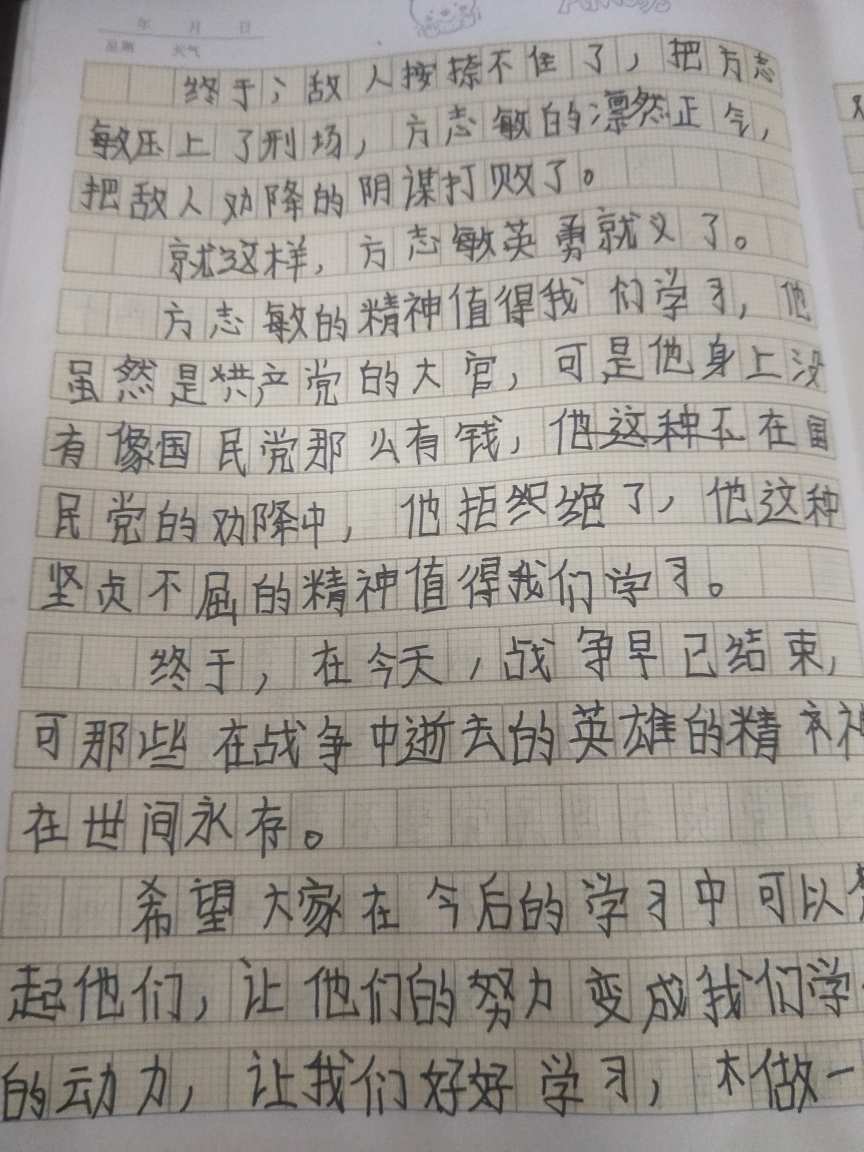 年 月 日
星期 天气
终于，敌人按捺不住了，把方志
敏压上了刑场，方志敏的凛然正气，
把敌人劝降的阴谋打败了。
就这样，方志敏英勇就义了。
方志敏的精神值得我们学习，他
虽然是共产党的大官，可是他身上没
有像国民党那么有钱，他这种不在国
民党的劝降中，他拒绝了，他这种
坚贞不屈的精神值得我们学习。
终于，在今天，战争早已结束，
可那些在战争中逝去的英雄的精神
在世间永存。
希望大家在今后的学习中可以
起他们，让他们的努力变成我们学
的动力，让我们好好学习，做一